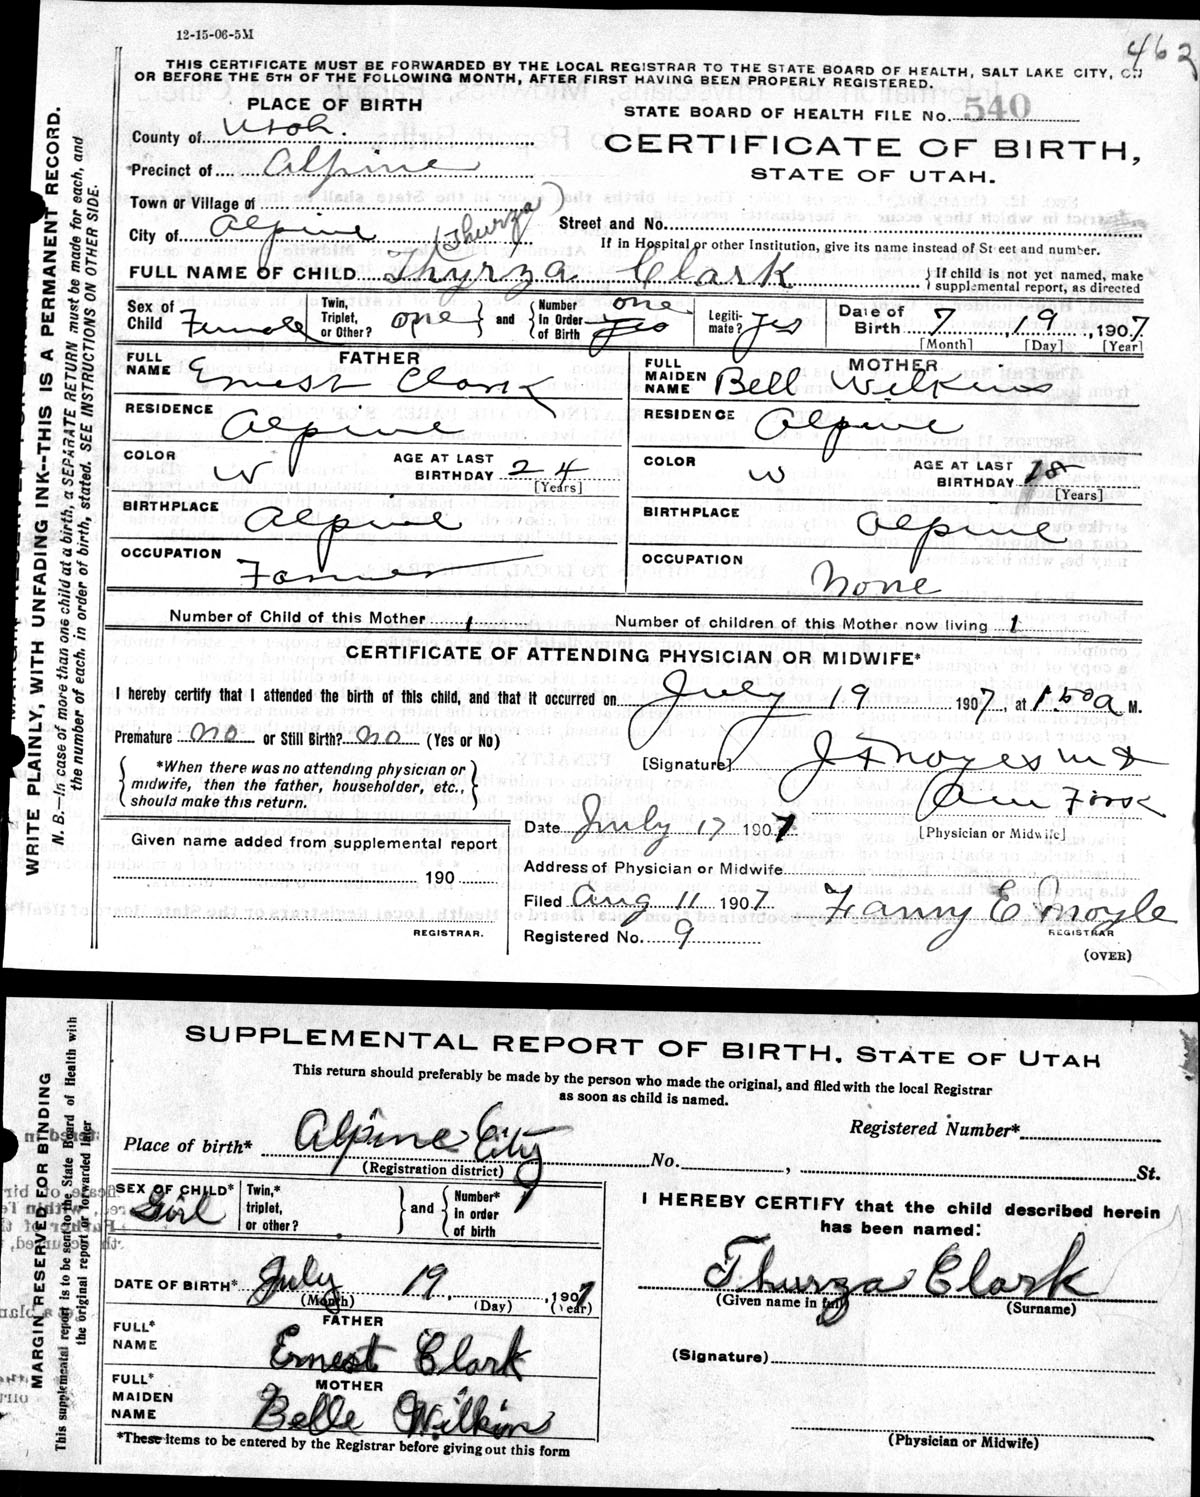 12-15-06-5M
462
THIS CERTIFICATE MUST BE FORWARDED BY THE LOCAL REGISTRAR TO THE STATE BOARD OF HEALTH, SALT LAKE CITY, ON
OR BEFORE THE 5TH OF THE FOLLOWING MONTH, AFTER FIRST HAVING BEEN PROPERLY REGISTERED.
PLACE OF BIRTH
STATE BOARD OF HEALTH FILE No. 540
County of Utah.
CERTIFICATE OF BIRTH,
Precinct of Alpine
STATE OF UTAH.
Town or Village of
City of Alpine
(Thurza)
Street and No.
If in Hospital or other Institution, give its name instead of Street and number.
FULL NAME OF CHILD Thyrza Clark
If child is not yet named, make
supplemental report, as directed
Sex of Child Female
Twin, Triplet, or Other? one and Number in Order of Birth one yes
Legitimate? yes
Date of Birth 7 19 1907
[Month] [Day] [Year]
FATHER
FULL NAME Ernest Clark
RESIDENCE Alpine
COLOR W
AGE AT LAST BIRTHDAY 24
[Years]
BIRTHPLACE Alpine
OCCUPATION Farmer
MOTHER
FULL MAIDEN NAME Bell Wilkins
RESIDENCE Alpine
COLOR W
AGE AT LAST BIRTHDAY 18
[Years]
BIRTHPLACE Alpine
OCCUPATION None
Number of Child of this Mother 1
Number of children of this Mother now living 1
CERTIFICATE OF ATTENDING PHYSICIAN OR MIDWIFE*
I hereby certify that I attended the birth of this child, and that it occurred on July 19 1907, at 1.50 a M.
Premature no or Still Birth? no (Yes or No)
*When there was no attending physician or
midwife, then the father, householder, etc.,
should make this return.
[Signature] J F Noyes M D
Am Fork
[Physician or Midwife]
Date July 17 1907
Given name added from supplemental report
190
REGISTRAR.
Address of Physician or Midwife
Filed Aug 11 1907
Fanny E Moyle
REGISTRAR
Registered No. 9
(OVER)
WRITE PLAINLY, WITH UNFADING INK--THIS IS A PERMANENT RECORD.
N. B.—In case of more than one child at a birth, a SEPARATE RETURN must be made for each, and
the number of each, in order of birth, stated. SEE INSTRUCTIONS ON OTHER SIDE.
SUPPLEMENTAL REPORT OF BIRTH, STATE OF UTAH
This return should preferably be made by the person who made the original, and filed with the local Registrar
as soon as child is named.
Place of birth* Alpine City
(Registration district)
No. , St.
Registered Number*
SEX OF CHILD* Girl
Twin,* triplet, or other? and Number* in order of birth
I HEREBY CERTIFY that the child described herein
has been named:
Thurza Clark
(Given name in full) (Surname)
DATE OF BIRTH* July 19, 1907
(Month) (Day) (Year)
FATHER
FULL* NAME Ernest Clark
MOTHER
FULL* MAIDEN NAME Belle Wilkin
(Signature)
(Physician or Midwife)
*These items to be entered by the Registrar before giving out this form
MARGIN RESERVED FOR BINDING
This supplemental report is to be sent to the State Board of Health with
the original report or forwarded later